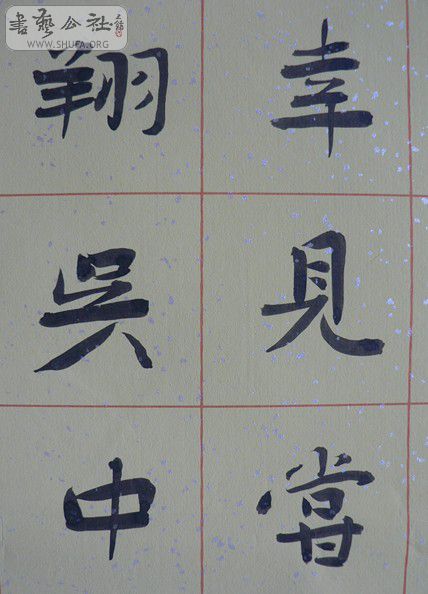 書藝公社
WWW.SHUFA.ORG
幸見甞
翔吳中